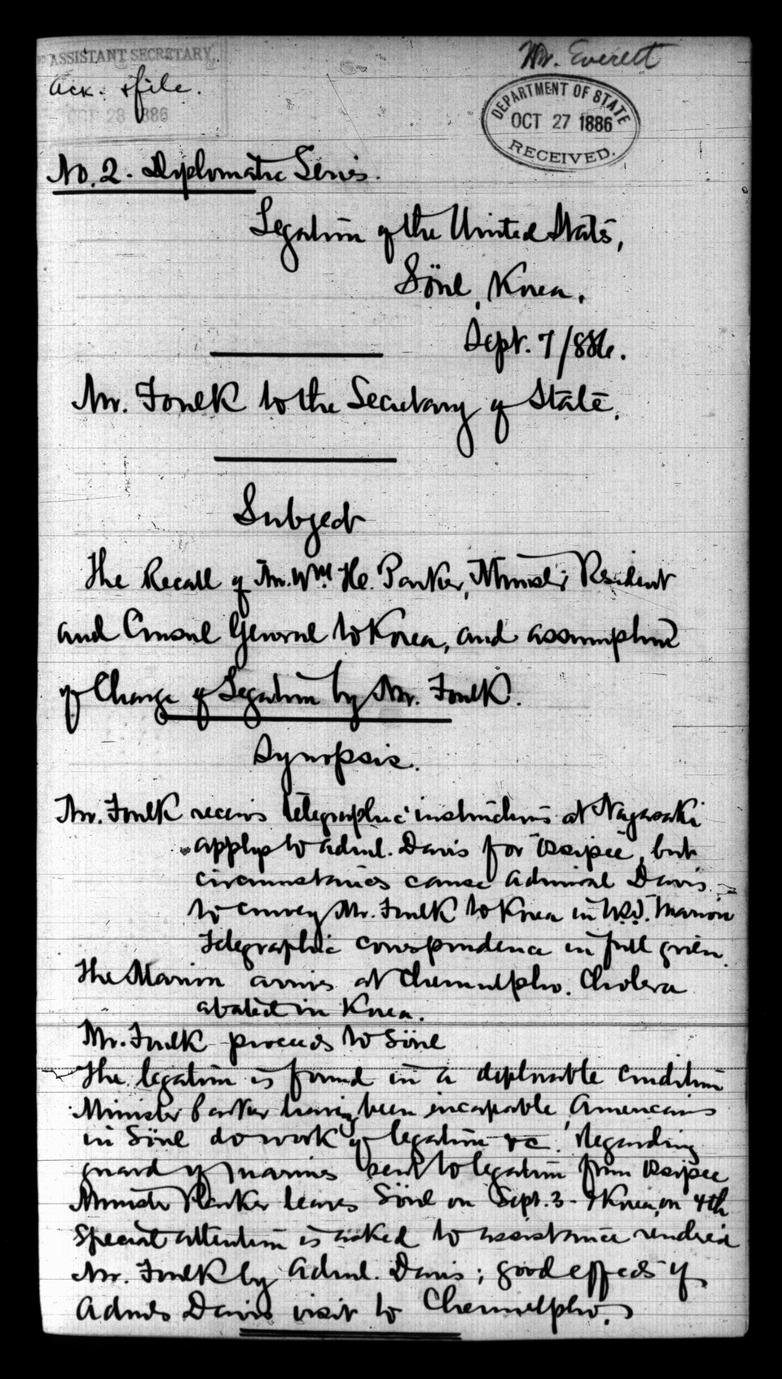 ASSISTANT SECRETARY,
Mr. Everett
Ack. & file.
OCT 28 1886
DEPARTMENT OF STATE
OCT 27 1886
RECEIVED.
No. 2 - Diplomatic Series.
Legation of the United States,
Söul, Korea,
Sept. 7/886.
Mr. Foulk to the Secretary of State.
Subject
The Recall of Mr. Wm. H. Parker, Minister Resident
and Consul General to Korea, and assumption
of Charge of Legation by Mr. Foulk.
Synopsis.
Mr. Foulk receives telegraphic instructions at Nagasaki
applys to Adml. Davis for "Ossipee", but
circumstances cause Admiral Davis
to convey Mr. Foulk to Korea in U.S.S. Marion
Telegraphic correspondence in full given.
The Marion arrives at Chemulpho. Cholera
abated in Korea.
Mr. Foulk proceeds to Söul
The legation is found in a deplorable condition
Minister Parker having been incapable Americans
in Söul do work of legation &c. Regarding
guard of marines sent to legation from Ossipee
Minister Parker leaves Söul on Sept. 3 - & Korea, on 4th
Special attention is asked to assistance rendered
Mr. Foulk by Adml. Davis; good effects of
Admls Davis visit to Chemulpho.